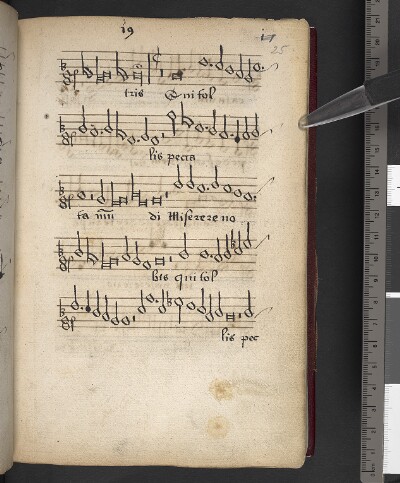 19
25
tris Qui tol
lis pecca
ta mū di Miserere no
bis qui tol
lis pec